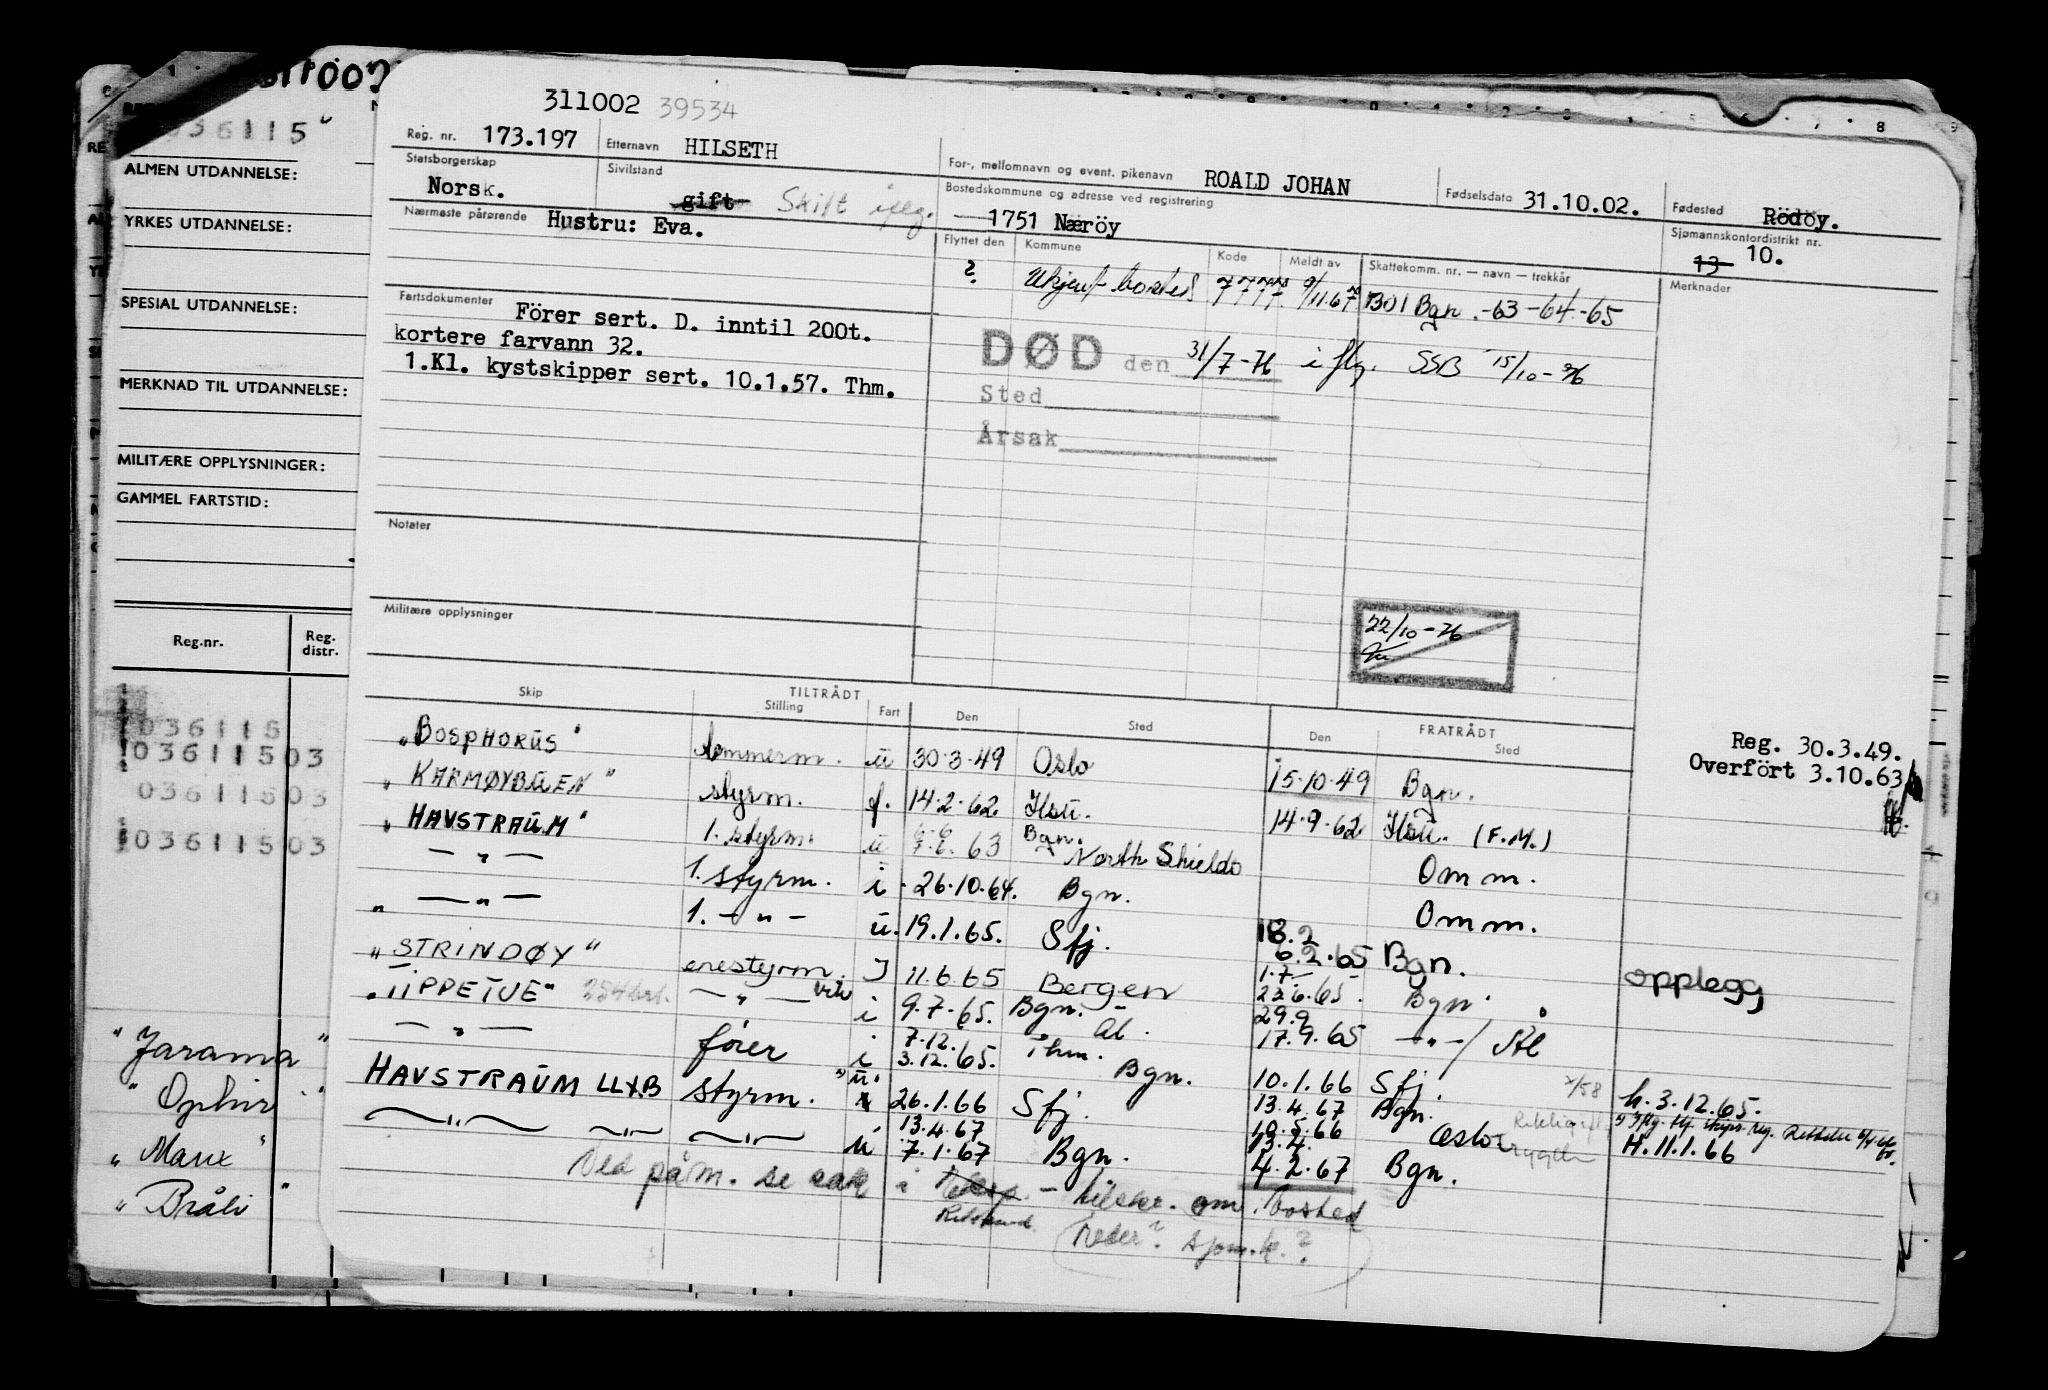 311002 39534
Reg. nr. 173.197 Etternavn HILSETH For-, mellomnavn og event. pikenavn ROALD JOHAN Fødselsdato 31.10.02. Fødested Rödöy.
Statsborgerskap Norsk. Sivilstand gift Skilt iflg. Bostedskommune og adresse ved registrering 1751 Næröy Sjømannskontordistrikt nr. 13 10.
Nærmeste pårørende Hustru: Eva. Flyttet den Kommune Kode Meldt av Skattekomm. nr. — navn — trekkår Merknader
? Ukjent bosted 7777 9/11.67 1301 Bgn. -63-64-65
Fartsdokumenter Förer sert. D. inntil 200t.
kortere farvann 32.
1.Kl. kystskipper sert. 10.1.57. Thm.
DØD den 31/7-76 iflg. SSB 15/10-76
Sted
Årsak
Notater
Militære opplysninger
22/10-76
Skip TILTRÅDT Stilling Fart Den Sted FRATRÅDT Den Sted
Reg. 30.3.49.
Overfört 3.10.63
"BOSPHORUS" tømmerm. u 30.3.49 Oslo 15.10.49 Bgn.
"KARMØYBUEN" styrm. f. 14.2.62 Hsu. 14.9.62 Hsu. (F.M.)
"HAVSTRAUM" 1. styrm. u 63 Bgn. North Shields Omm.
— " — 1. styrm. i 26.10.64. Bgn. Omm.
" — " — 1. — " — u. 19.1.65. Sfj. 18.2 6.2.65 Bgn.
"STRINDØY" enestyrm. I 11.6.65 Bergen 1.7. 23.6.65. Bgn. opplegg
"TIPPETUE" 254brt. — " — vik i 9.7.65. Bgn. Ål. 29.9 17.9.65 — " — / Ål
— " — fører i 7.12. 3.12.65. Thm. Bgn. 10.1.66 Sfj. h. 3.12.65.
HAVSTRAUM LLXB styrm. u. 26.1.66 Sfj. 13.4.67 Bgn.
13.4.67 10.5.66 Oslo H. 11.1.66
— " — — " — — " — u 7.1.67 Bgn. 13.4. 4.2.67 Bgn.
Ved påm. se sak i — tilskr. om bosted
Reder? sjøm.k.?
0361150
ALMEN UTDANNELSE:
YRKES UTDANNELSE:
SPESIAL UTDANNELSE:
MERKNAD TIL UTDANNELSE:
MILITÆRE OPPLYSNINGER:
GAMMEL FARTSTID:
Reg.nr. Reg. distr.
036115
03611503
03611503
03611503
"Jarama"
"Ophir"
"Marix"
"Bråli"